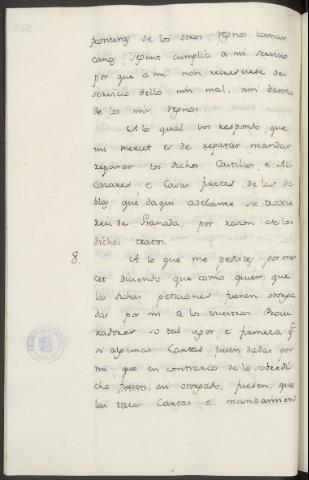 fronteras de los otros Regnos comar
canos, segunt cumplia a mi servicio
por que a mi non recresciese de
servicio dello, nin mal, nin danno
de los mis Regnos.
A lo qual vos respondo que
mi merced es de reparar, mandar
reparar los dichos Castillos, e Al
cazares e Casas fuertes de las di
que daqui adelante se
de Granada, por razon de los
dichos tratos.
8. A lo que me pedistes por mer
cet diciendo que como quier que
las dichas peticiones fueran otorga
das por mi a los vuestros Procu
radores so tal e firmeza q.
si algunas Cartas fuesen dadas por
mi que en contrario de lo sobredi
cho fuesen, asi otorgado, fuesen, que
las tales Cartas e mandamien